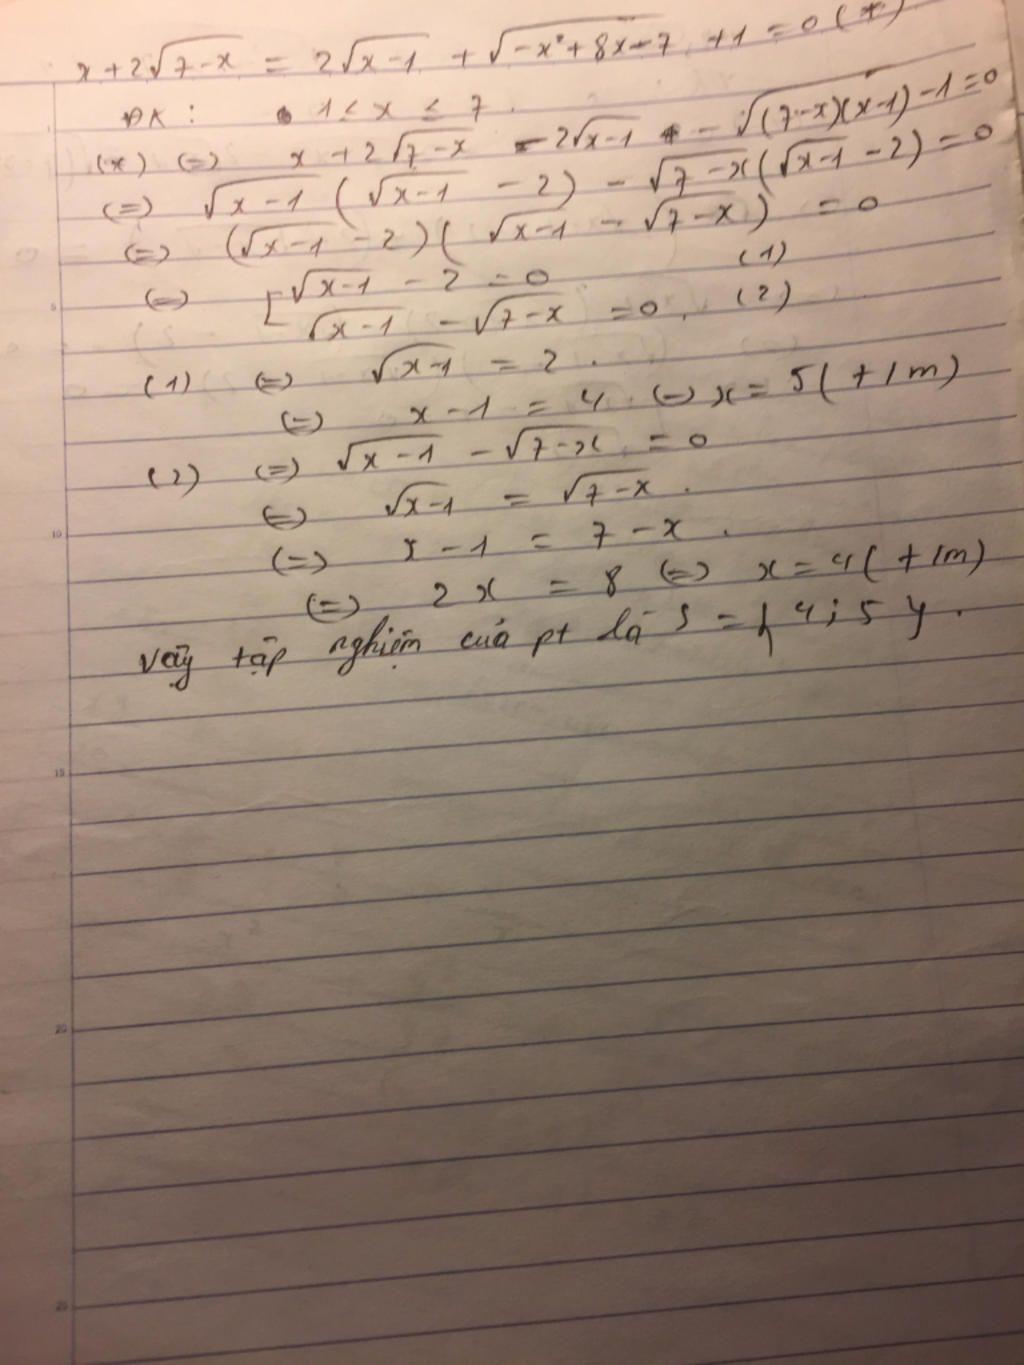 x + 2√(7-x) = 2√(x-1) + √(-x²+8x-7) +1 = 0 (*)
ĐK : 1 ≤ x ≤ 7 .
(*) (=) x + 2√(7-x) - 2√(x-1) - √((7-x)(x-1)) - 1 = 0
(=) √(x-1) (√(x-1) - 2) - √(7-x) (√(x-1) - 2) = 0
(=) (√(x-1) - 2) (√(x-1) - √(7-x)) = 0
(=) [ √(x-1) - 2 = 0 (1)
√(x-1) - √(7-x) = 0 . (2)
(1) (=) √(x-1) = 2 .
(=) x - 1 = 4 (=) x = 5 (t/m)
(2) (=) √(x-1) - √(7-x) = 0
(=) √(x-1) = √(7-x) .
(=) x - 1 = 7 - x .
(=) 2x = 8 (=) x = 4 (t/m)
vậy tập nghiệm của pt là S = { 4 ; 5 } .
5
10
15
20
25